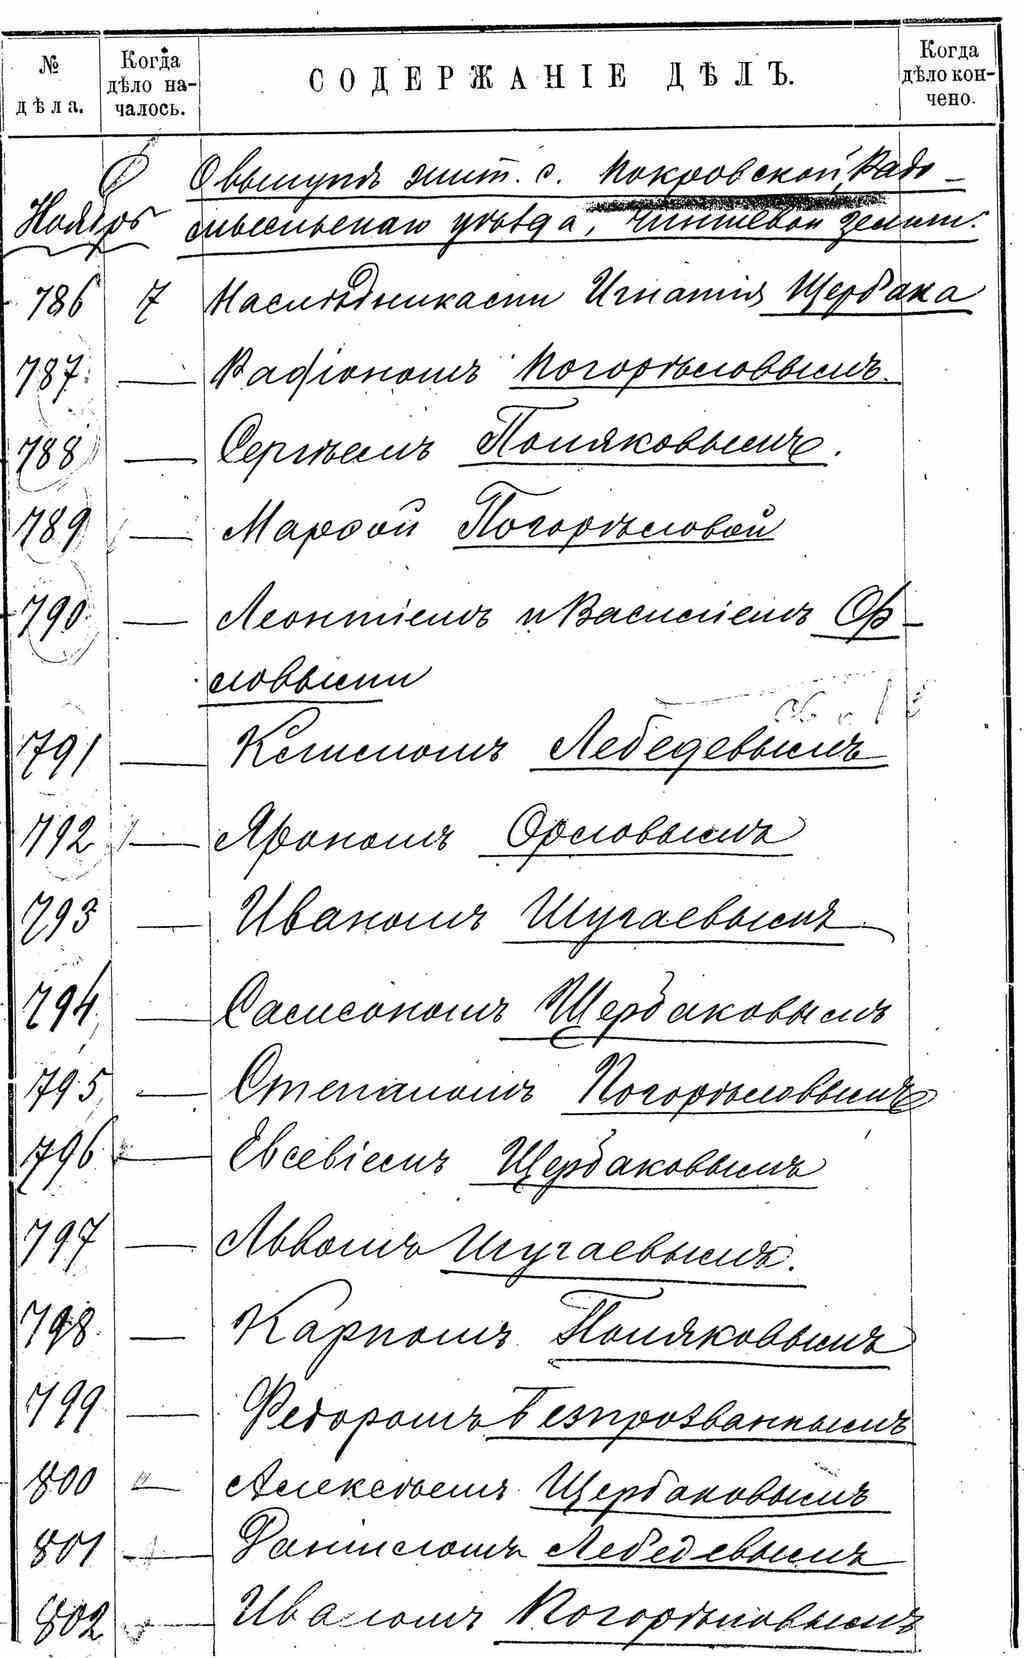 № дѣла. Когда дѣло на-чалось. СОДЕРЖАНІЕ ДѢЛЪ. Когда дѣло кон-чено.
О выкупѣ жит. с. Покровской, Радо-
Ноябрь мысльскаго уѣзда, чиншевой земли:
786 7 Наслѣдниками Игнатія Щербака
787 — Родіономъ Погорѣловымъ.
788 — Сергѣемъ Поляковымъ.
789 — Марфой Погорѣловой
790 — Леонтіемъ и Василіемъ Ор-
ловыми
791 — Климомъ Лебедевымъ
792 — Орловымъ
793 — Иваномъ Шугаевымъ
794 — Самсономъ Щербаковымъ
795 — Степаномъ Погорѣловымъ
796 — Евсевіемъ Щербаковымъ
797 — Львомъ Шугаевымъ.
798 — Карпомъ Поляковымъ
799 — Федоромъ Безпрозваннымъ
800 — Алексѣемъ Щербаковымъ
801 — Даніиломъ Лебедевымъ
802 — Иваномъ Погорѣловымъ